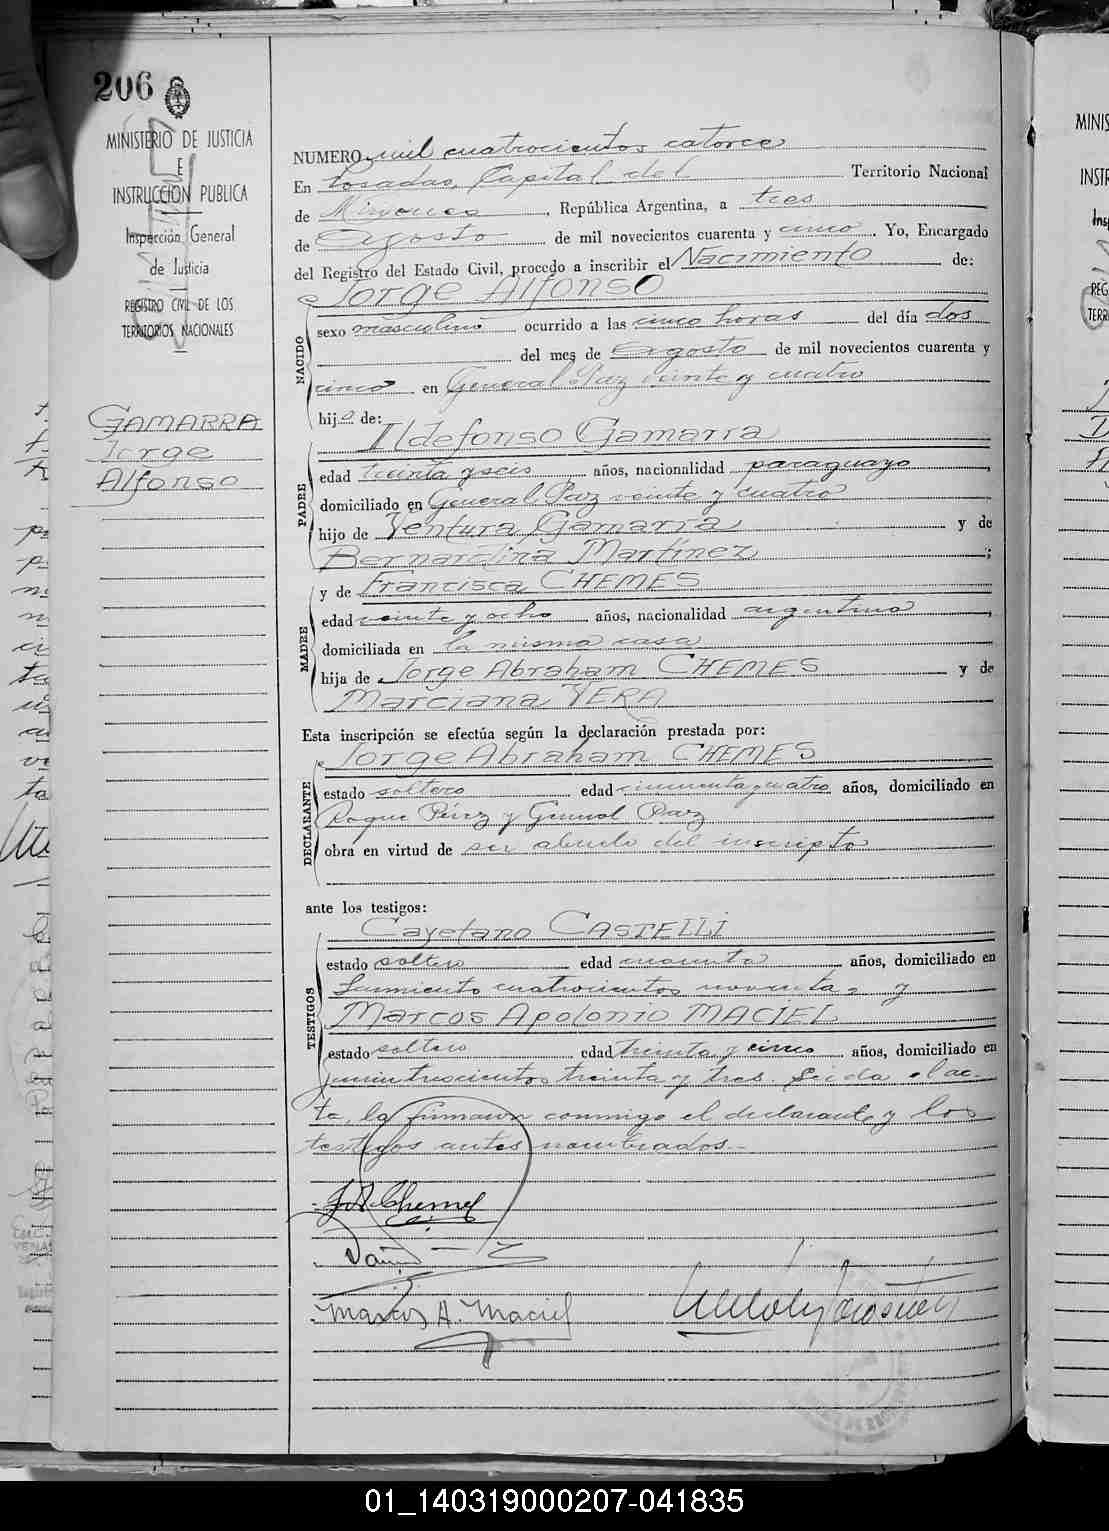 206
MINISTERIO DE JUSTICIA
E
INSTRUCCION PUBLICA
Inspección General
de Justicia
REGISTRO CIVIL DE LOS
TERRITORIOS NACIONALES
GAMARRA
Jorge
Alfonso
NUMERO mil cuatrocientos catorce
En Posadas, Capital del Territorio Nacional
de Misiones, República Argentina, a tres
de Agosto de mil novecientos cuarenta y cinco. Yo, Encargado
del Registro del Estado Civil, procedo a inscribir el Nacimiento de:
Jorge Alfonso
NACIDO
sexo masculino ocurrido a las cinco horas del día dos
del mes de Agosto de mil novecientos cuarenta y
cinco en General Paz veinte y cuatro
hijo de:
Ildefonso Gamarra
PADRE
edad treinta y seis años, nacionalidad paraguayo,
domiciliado en General Paz veinte y cuatro
hijo de Ventura Gamarra y de
Bernardina Martínez;
y de Francisca CHEMES
MADRE
edad veinte y ocho años, nacionalidad argentina,
domiciliada en la misma casa
hija de Jorge Abraham CHEMES y de
Marciana VERA
Esta inscripción se efectúa según la declaración prestada por:
Jorge Abraham CHEMES
DECLARANTE
estado soltero edad cincuenta y cuatro años, domiciliado en
Roque Pérez y General Paz
obra en virtud de ser abuelo del inscripto
ante los testigos:
Cayetano CASTELLI
TESTIGOS
estado soltero edad cuarenta años, domiciliado en
Sarmiento cuatrocientos noventa, y
Marcos Apolonio MACIEL
estado soltero edad treinta y cinco años, domiciliado en
Junin trescientos treinta y tres. Leida el ac-
ta, la firmaron conmigo el declarante y los
testigos antes nombrados.-
J A Chemes
Marcos A. Maciel
01_140319000207-041835